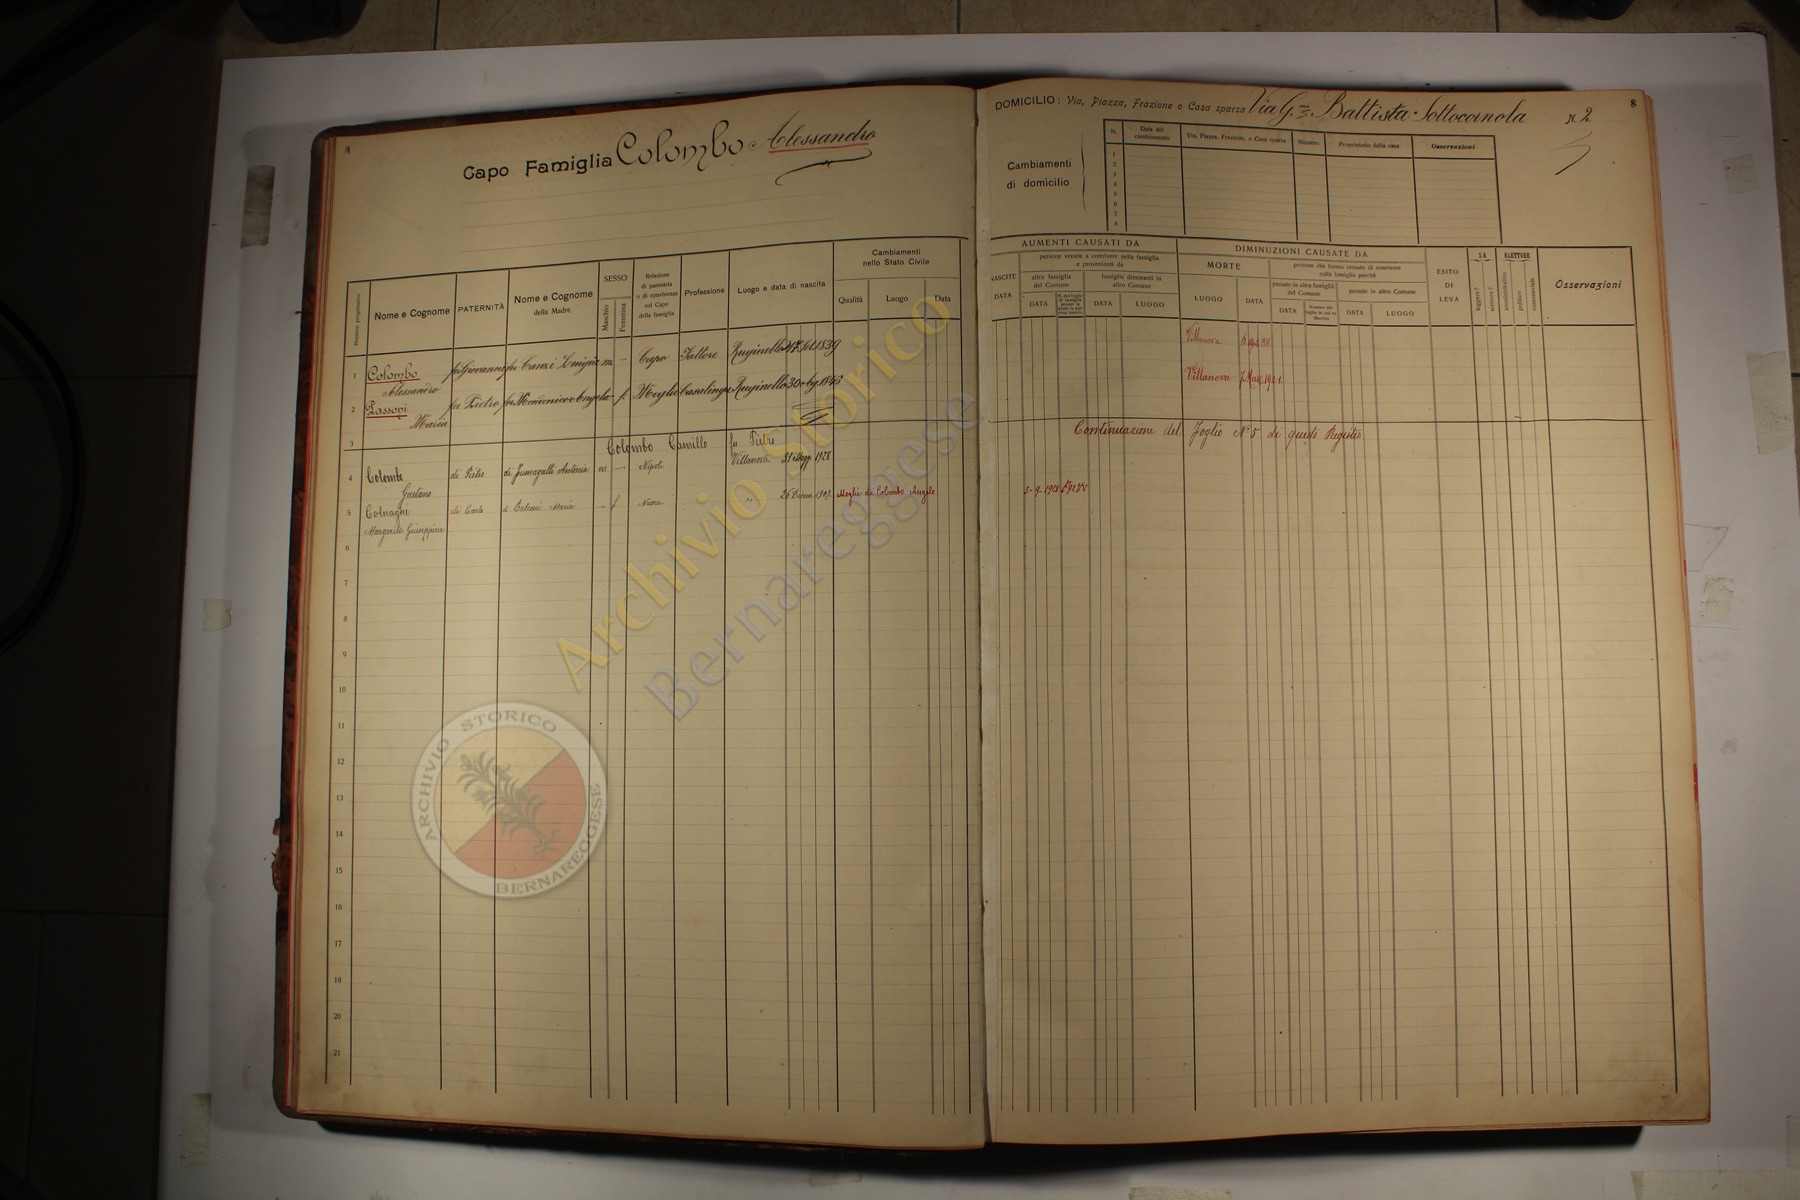 8
Capo Famiglia Colombo Alessandro
DOMICILIO: Via, Piazza, Frazione o Casa sparsa Via G. Battista Sottocornola N. 2
8
Cambiamenti di domicilio
N. Data del cambiamento Via, Piazza, Frazione, o Casa sparsa Numero Proprietario della casa Osservazioni
1
2
3
4
5
6
7
8
Numero progressivo
Nome e Cognome
PATERNITÀ
Nome e Cognome della Madre
SESSO
Maschio
Femmina
Relazione di parentela o di convivenza col Capo della famiglia
Professione
Luogo e data di nascita
Cambiamenti nello Stato Civile
Qualità Luogo Data
AUMENTI CAUSATI DA
NASCITE
DATA
persone venute a convivere nella famiglia e provenienti da
altra famiglia del Comune
DATA
famiglie dimoranti in altro Comune
DATA LUOGO
DIMINUZIONI CAUSATE DA
MORTE
LUOGO DATA
persone che hanno cessato di convivere nella famiglia perchè
passate in altra famiglia del Comune
DATA
passate in altro Comune
DATA LUOGO
ESITO DI LEVA
SA
leggere?
scrivere?
ELETTORE
amministrativo
politico
commerciale
Osservazioni
1 Colombo Alessandro fu Giovanni fu Canzi Luigia m. — Capo Fattore Ruginello Set. 1839 Villanova
2 Passoni Maria fu Pietro fu Angela - f. Moglie Casalinga Ruginello 30 1843 Villanova 7 Mar. 1921
3 Colombo Camillo fu Pietro Continuazione del Foglio N° 5 di questo Registro
4 Colombo Gaetano di Pietro di Fumagalli Antonia m — Nipote Villanova 31 Magg. 1928
5 Colnaghi Margerita Giuseppina di Carlo di Balconi Maria - f Nuora " 26 Dicem. 1907 Moglie di Colombo Angelo
6
7
8
9
10
11
12
13
14
15
16
17
18
19
20
21
Archivio Storico
Bernareggese
ARCHIVIO STORICO
BERNAREGGESE